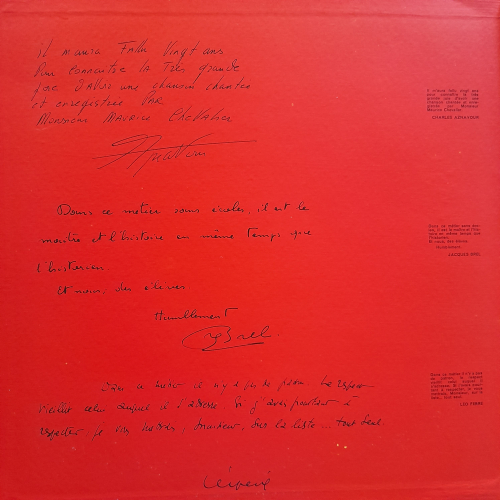 il m'aura Fallu Vingt ans
Pour connaitre LA Tres grande
joie D'AVOIR une chanson chantee
et enregistree PAR
Monsieur MAURICE CHEVALIER
Aznavour
Il m'aura fallu vingt ans
pour connaître la très
grande joie d'avoir une
chanson chantée et enre-
gistrée par Monsieur
Maurice Chevalier.
CHARLES AZNAVOUR
Dans ce métier sans écoles, il est le
maître et l'histoire en même temps que
l'historien
Et nous, des élèves
Humblement
JBrel
Dans ce métier sans éco-
les, il est le maître et l'his-
toire en même temps que
l'historien.
Et nous, des élèves.
Humblement.
JACQUES BREL
Dans ce métier il n'y a pas de
Vieillit celui auquel il s'adresse. Si j'avais
respecter je vous mettrais, Monsieur, sur la liste tout seul.
Léo Ferré
LEO FERRE